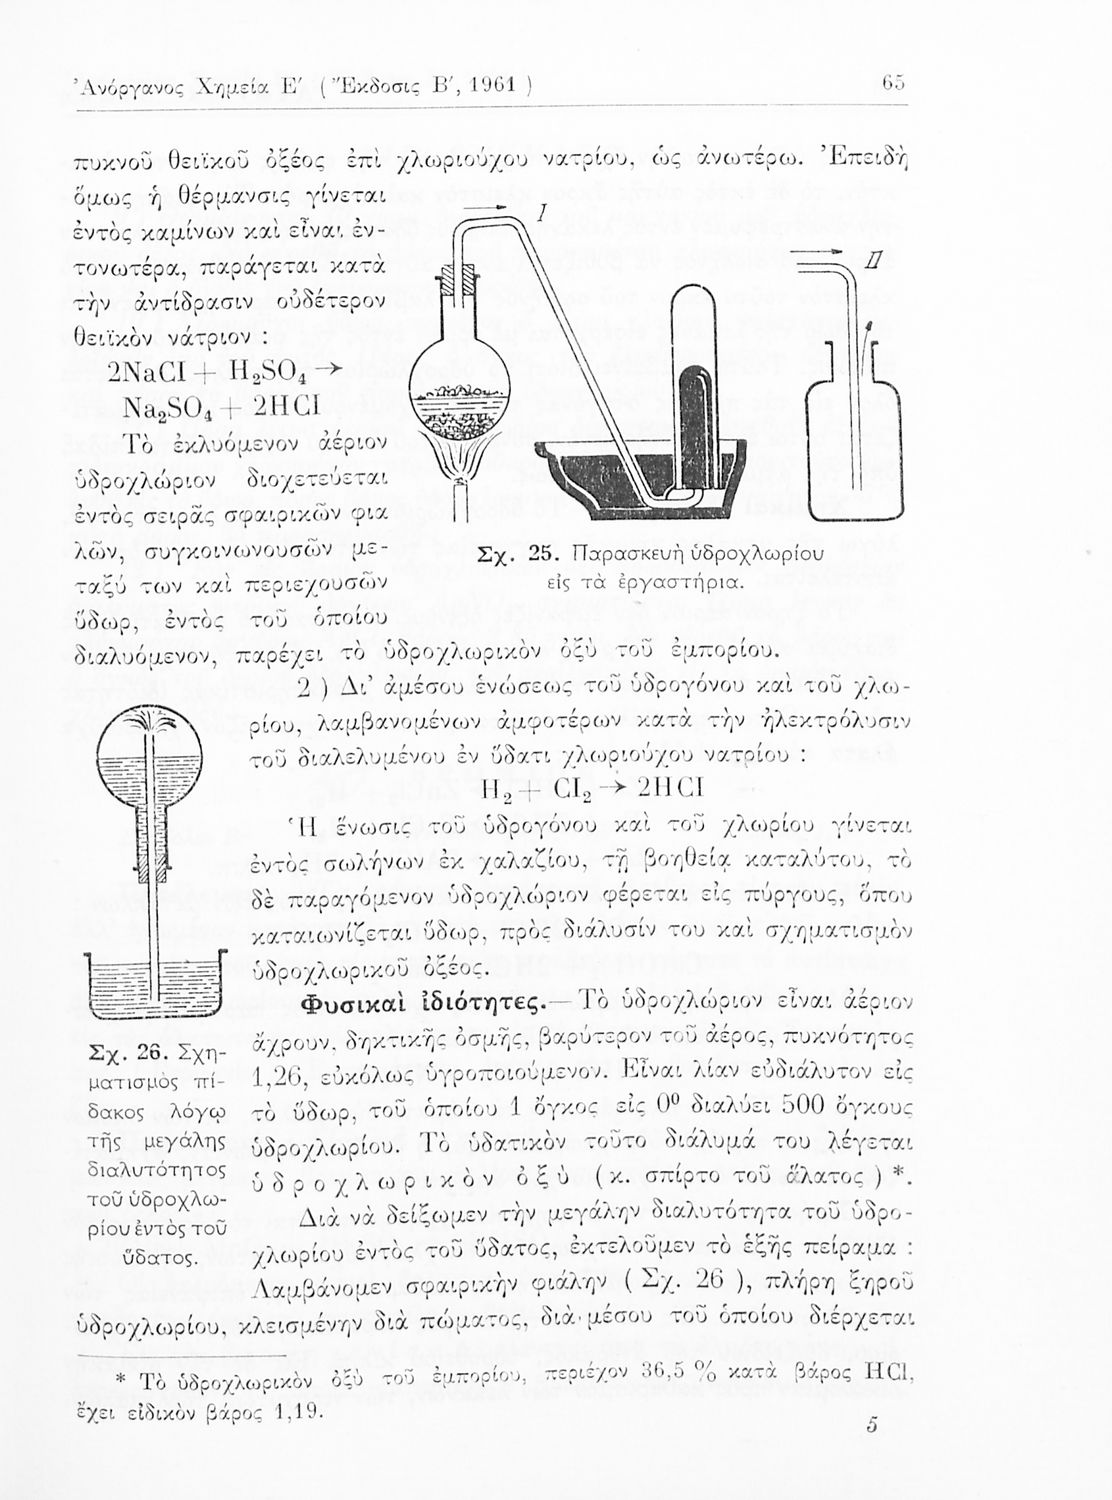 Ἀνόργανος Χημεία Ε′ (Ἔκδοσις Β′, 1961)
65
πυκνοῦ θειϊκοῦ ὀξέος ἐπὶ χλωριούχου νατρίου, ὡς ἀνωτέρω. Ἐπειδὴ
ὅμως ἡ θέρμανσις γίνεται
ἐντὸς καμίνων καὶ εἶναι ἐν-
τονωτέρα, παράγεται κατὰ
τὴν ἀντίδρασιν οὐδέτερον
θειϊκὸν νάτριον :
2NaCl + H₂SO₄ →
Na₂SO₄ + 2HCl
Τὸ ἐκλυόμενον ἀέριον
ὑδροχλώριον διοχετεύεται
ἐντὸς σειρᾶς σφαιρικῶν φια
λῶν, συγκοινωνουσῶν με-
ταξύ των καὶ περιεχουσῶν
ὕδωρ, ἐντὸς τοῦ ὁποίου
I
II
Σχ. 25. Παρασκευὴ ὑδροχλωρίου
εἰς τὰ ἐργαστήρια.
διαλυόμενον, παρέχει τὸ ὑδροχλωρικὸν ὀξὺ τοῦ ἐμπορίου.
2 ) Δι’ ἀμέσου ἑνώσεως τοῦ ὑδρογόνου καὶ τοῦ χλω-
ρίου, λαμβανομένων ἀμφοτέρων κατὰ τὴν ἠλεκτρόλυσιν
τοῦ διαλελυμένου ἐν ὕδατι χλωριούχου νατρίου :
H₂ + Cl₂ → 2HCl
Ἡ ἕνωσις τοῦ ὑδρογόνου καὶ τοῦ χλωρίου γίνεται
ἐντὸς σωλήνων ἐκ χαλαζίου, τῇ βοηθείᾳ καταλύτου, τὸ
δὲ παραγόμενον ὑδροχλώριον φέρεται εἰς πύργους, ὅπου
καταιωνίζεται ὕδωρ, πρὸς διάλυσίν του καὶ σχηματισμὸν
ὑδροχλωρικοῦ ὀξέος.
Φυσικαὶ ἰδιότητες.— Τὸ ὑδροχλώριον εἶναι ἀέριον
ἄχρουν, δηκτικῆς ὀσμῆς, βαρύτερον τοῦ ἀέρος, πυκνότητος
1,26, εὐκόλως ὑγροποιούμενον. Εἶναι λίαν εὐδιάλυτον εἰς
τὸ ὕδωρ, τοῦ ὁποίου 1 ὄγκος εἰς 0⁰ διαλύει 500 ὄγκους
ὑδροχλωρίου. Τὸ ὑδατικὸν τοῦτο διάλυμά του λέγεται
ὑ δ ρ ο χ λ ω ρ ι κ ὸ ν ὀ ξ ὺ (κ. σπίρτο τοῦ ἅλατος ) *.
Διὰ νὰ δείξωμεν τὴν μεγάλην διαλυτότητα τοῦ ὑδρο-
χλωρίου ἐντὸς τοῦ ὕδατος, ἐκτελοῦμεν τὸ ἑξῆς πείραμα :
Λαμβάνομεν σφαιρικὴν φιάλην ( Σχ. 26 ), πλήρη ξηροῦ
Σχ. 26. Σχη-
ματισμὸς πί-
δακος λόγῳ
τῆς μεγάλης
διαλυτότητος
τοῦ ὑδροχλω-
ρίου ἐντὸς τοῦ
ὕδατος.
ὑδροχλωρίου, κλεισμένην διὰ πώματος, διὰ μέσου τοῦ ὁποίου διέρχεται
* Τὸ ὑδροχλωρικὸν ὀξὺ τοῦ ἐμπορίου, περιέχον 36,5 % κατὰ βάρος HCl,
ἔχει εἰδικὸν βάρος 1,19.
5